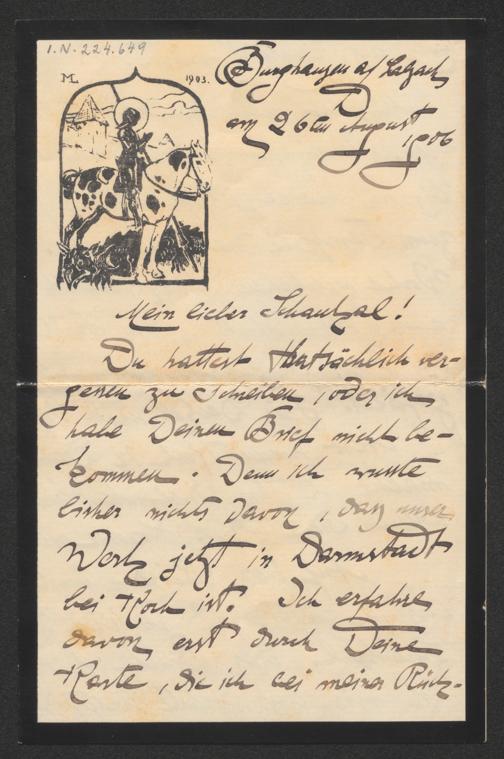 I.N. 224.649
ML 1903.
Burghausen a/ Salzach
am 26ten August
1906
Mein lieber Schaukal!
Du hattest thatsächlich ver-
gessen zu schreiben, oder ich
habe Deinen Brief nicht be-
kommen. Denn ich wusste
bisher nichts davon, dass unser
Werk jetzt in Darmstadt
bei Koch ist. Ich erfahre
davon erst durch Deine
Karte, die ich bei meiner Rück-